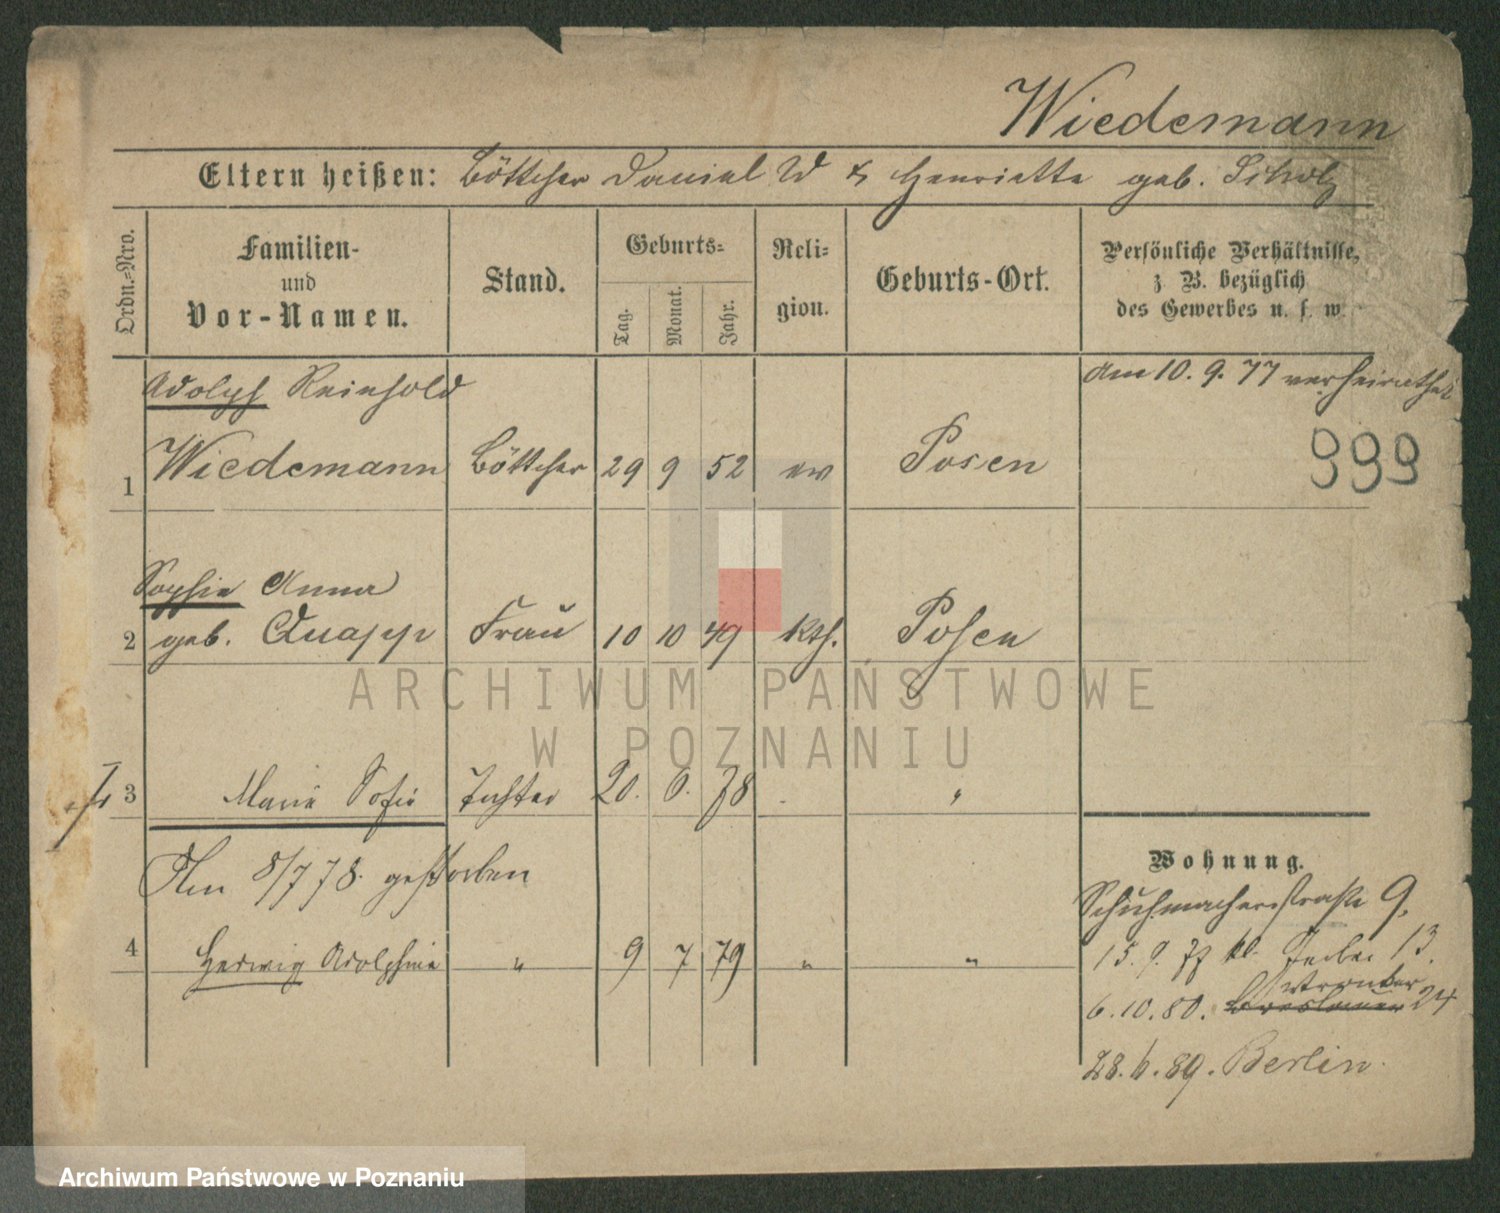 Wiedemann
Eltern heißen: Böttcher Daniel W & Henriette geb. Scholz
Ordn.=Nro.
Familien-
und
Vor-Namen.
Stand.
Geburts=
Tag.
Monat.
Jahr.
Reli=
gion.
Geburts-Ort.
Persönliche Verhältnisse,
z. B. bezüglich
des Gewerbes u. s. w.
Adolph Reinhold
am 10. 9. 77 verheirathet
1 Wiedemann Böttcher 29 9 52 ev Posen
999
Sophie Anna
2 geb. Quapp Frau 10 10 49 kth. Posen
3 Marie Sofie Tochter 20. 6. 78 "
Am 8/7 78. gestorben
4 Hedwig Adolphine " 9 7 79 " "
Wohnung.
Schuhmacherstraße 9.
15. 9. 77 kl. 13.
6. 10. 80. Breslauer 24
28. 6. 89. Berlin.
ARCHIWUM PAŃSTWOWE
W POZNANIU
Archiwum Państwowe w Poznaniu